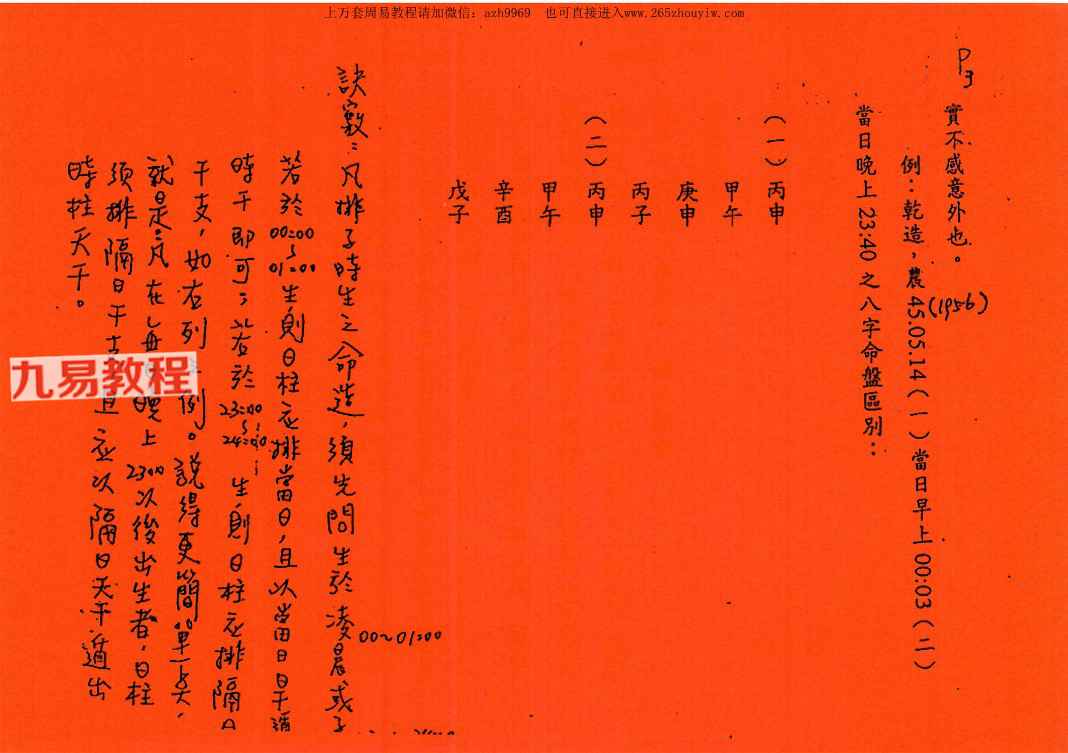 上万套周易教程请加微信：azh9969 也可直接进入www.265zhouyiw.com
P3
實不感意外也。
例：乾造，農45.05.14（一）當日早上00:03（二）
(1956)
當日晚上23:40之八字命盤區別：
（一）丙申
甲午
庚申
丙子
（二）丙申
甲午
辛酉
戊子
訣竅：凡排子時生之命造，須先問生於凌晨或子
00~01:00
若於00:00~01:00生，則日柱應排當日，且以當日日干遁
時干即可；若於23:00~24:00；生，則日柱應排隔日
干支，如右列 例。說得更簡單一點，
就是：凡在每 晚上23:00以後出生者，日柱
須排隔日干支 且應以隔日天干遁出
時柱天干。
九易教程